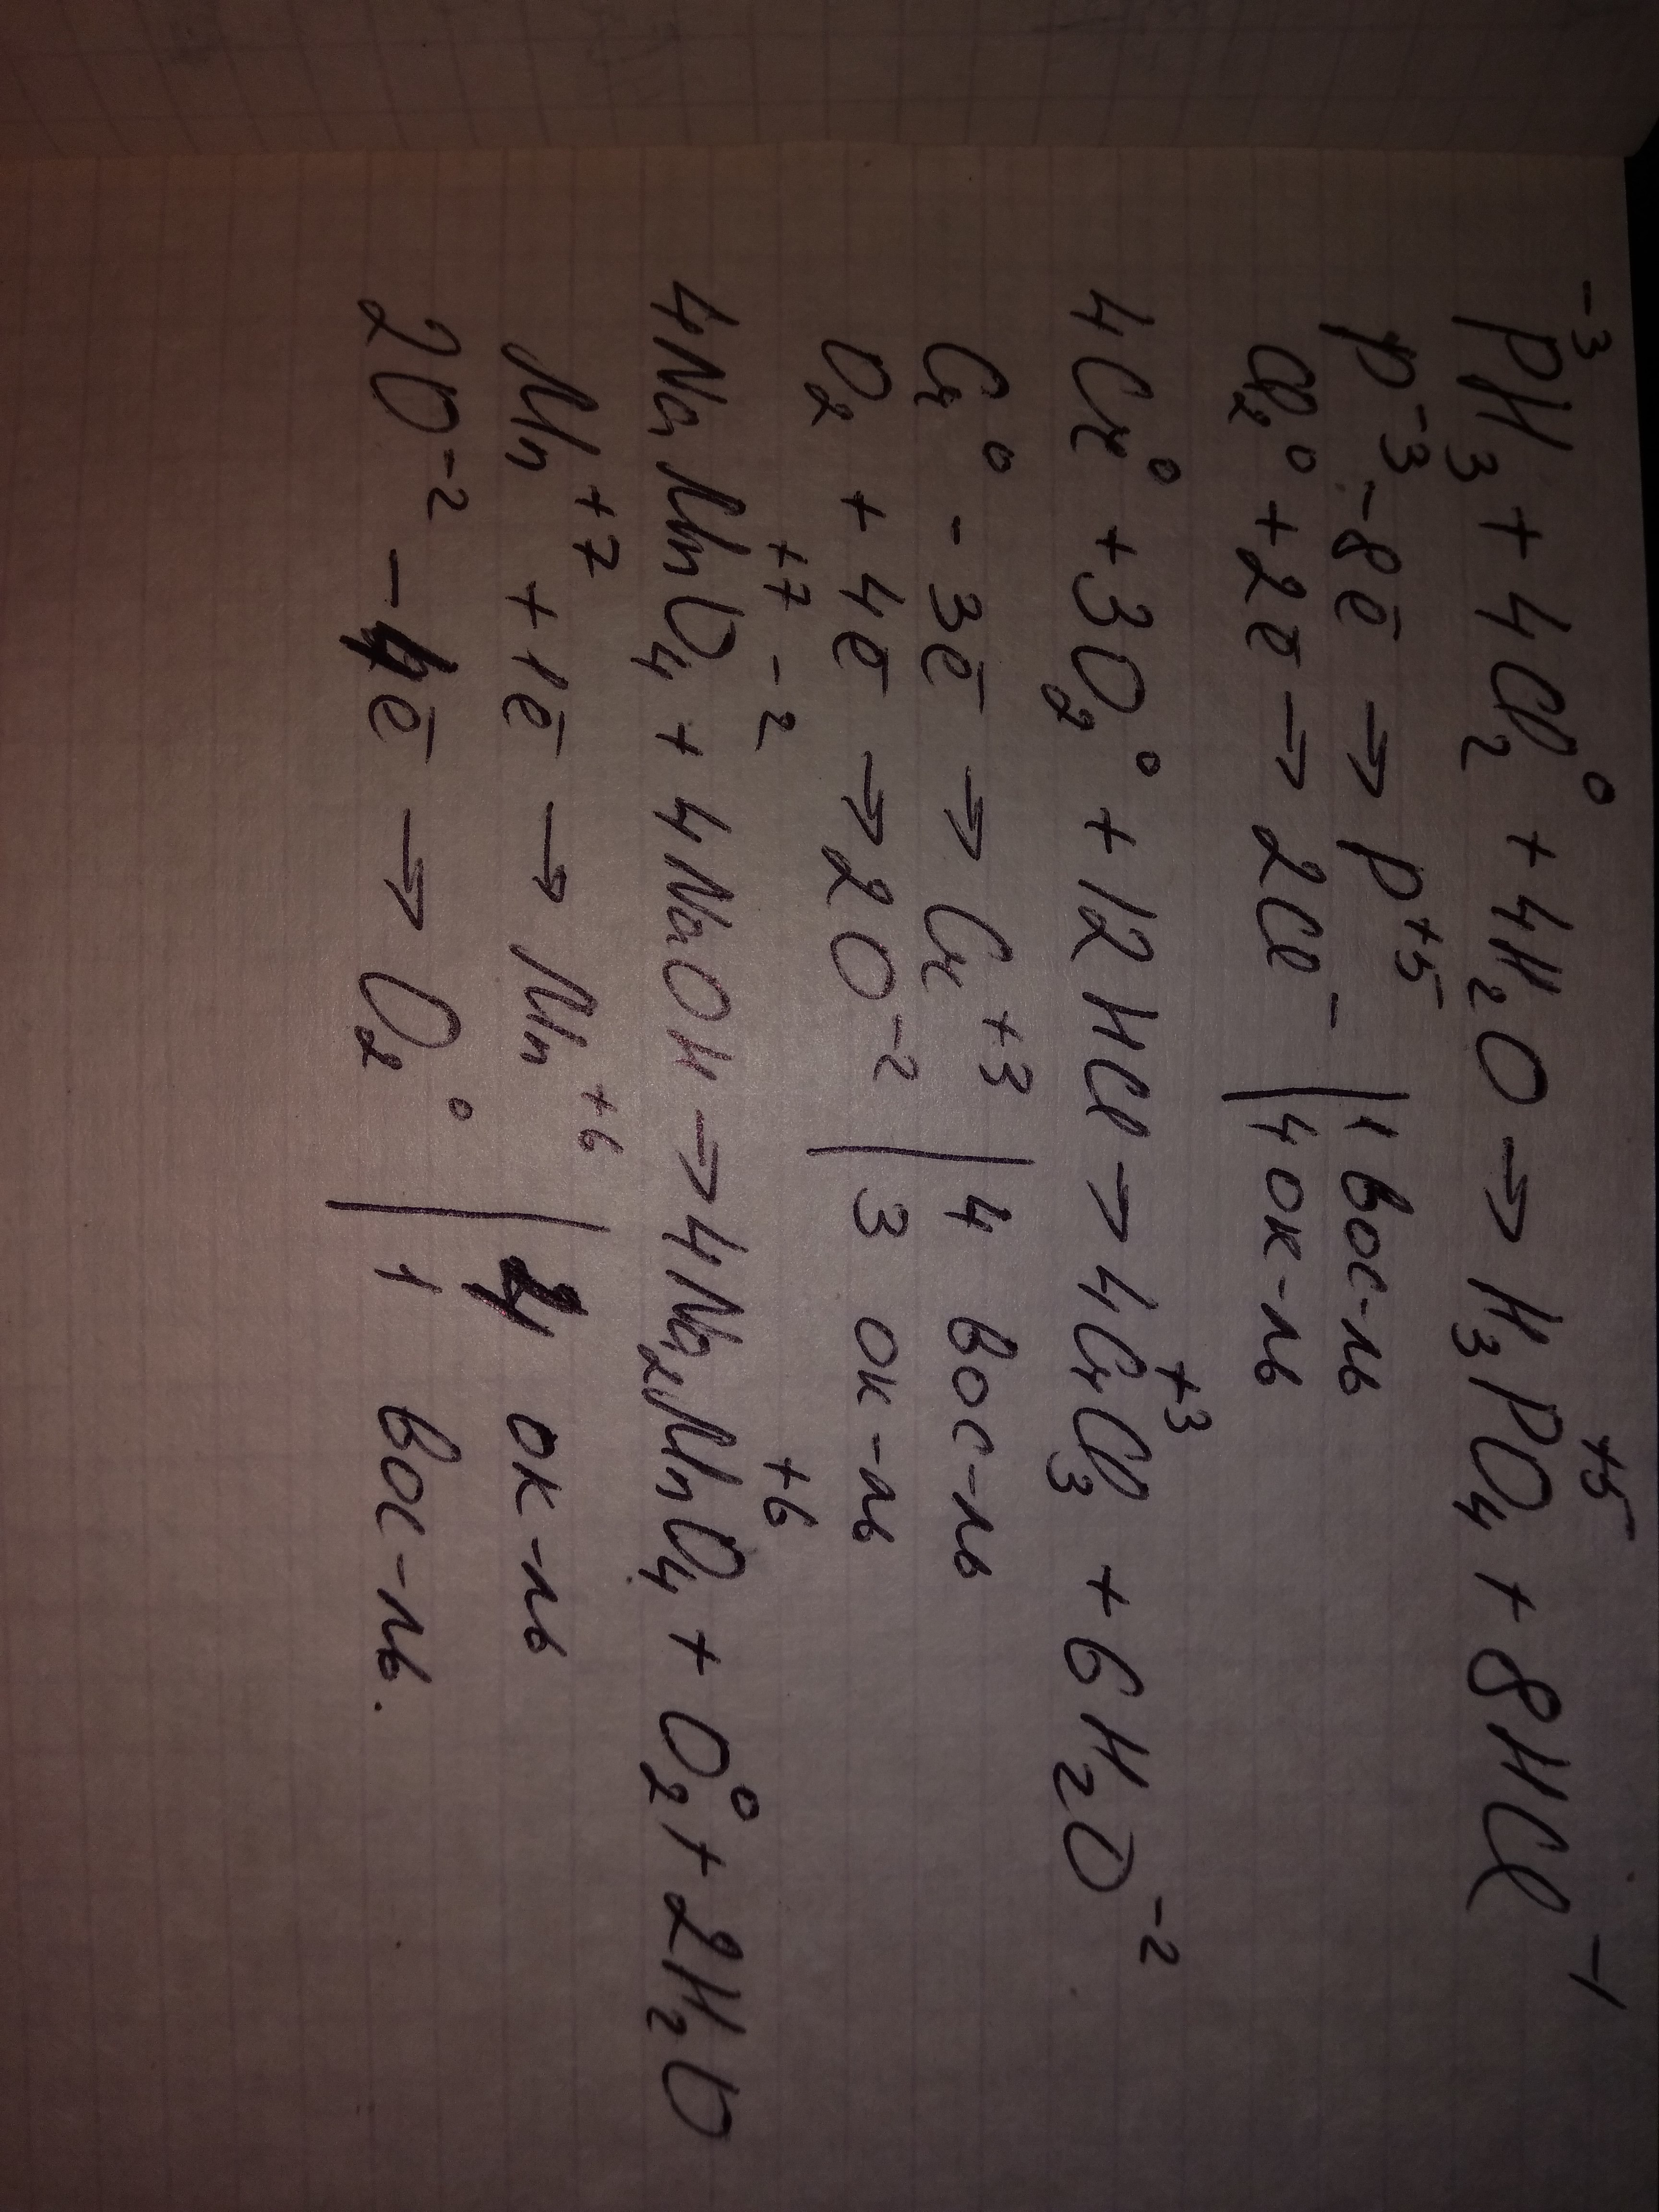 P⁻³H₃ + 4Cl₂⁰ + 4H₂O → H₃P⁺⁵O₄ + 8HCl⁻¹
P⁻³ - 8ē → P⁺⁵ | 1 вос-ль
Cl₂⁰ + 2ē → 2Cl⁻ | 4 ок-ль
4Cr⁰ + 3O₂⁰ + 12HCl → 4Cr⁺³Cl₃ + 6H₂O⁻²
Cr⁰ - 3ē → Cr⁺³ | 4 вос-ль
O₂ + 4ē → 2O⁻² | 3 ок-ль
4NaMn⁺⁷O₄⁻² + 4NaOH → 4Na₂Mn⁺⁶O₄ + O₂⁰ + 2H₂O
Mn⁺⁷ + 1ē → Mn⁺⁶ | 4 ок-ль
2O⁻² - 4ē → O₂⁰ | 1 вос-ль.